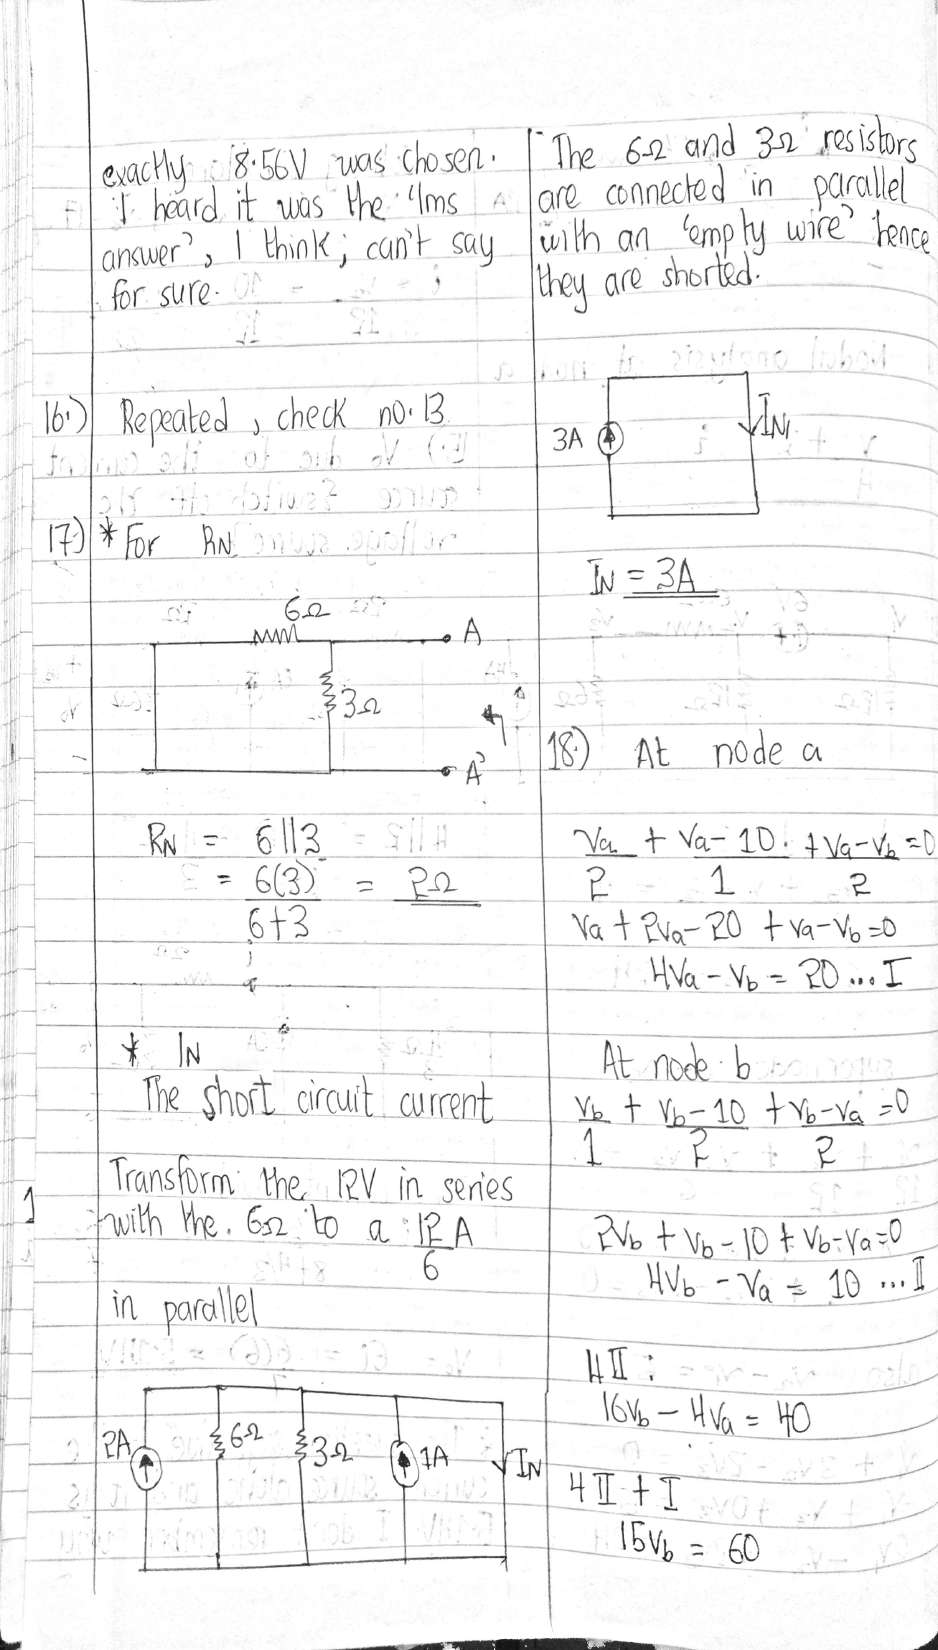 exactly 8.56V was chosen.
I heard it was the 'lms
answer', I think; can't say
for sure.
16.) Repeated, check no. 13
17.) * For RN
6Ω
A
3Ω
A'
RN = 6||3
= 6(3) = 2Ω
6+3
* IN
The short circuit current
Transform the 12V in series
with the 6Ω to a 12 A
6
in parallel
2A 6Ω 3Ω 1A IN
The 6Ω and 3Ω resistors
are connected in parallel
with an 'empty wire' hence
they are shorted.
3A IN
IN = 3A
18.) At node a
Va + Va-10 + Va-Vb =0
2 1 2
Va + 2Va-20 + Va-Vb=0
4Va - Vb = 20 ... I
At node b
Vb + Vb-10 + Vb-Va =0
1 2 2
2Vb + Vb-10 + Vb-Va=0
4Vb - Va = 10 ... II
4II :
16Vb - 4Va = 40
4II + I
15Vb = 60